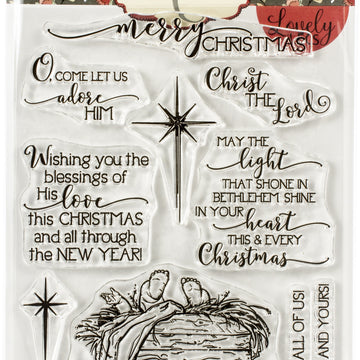 Lovely
merry
CHRISTMAS!
O, COME LET US
adore
HIM
Christ
THE
Lord
Wishing you the
blessings of
His love
this CHRISTMAS
and all through
the NEW YEAR!
MAY THE
light
THAT SHONE IN
BETHLEHEM SHINE
IN YOUR heart
THIS & EVERY
Christmas
ALL OF US!
AND YOURS!